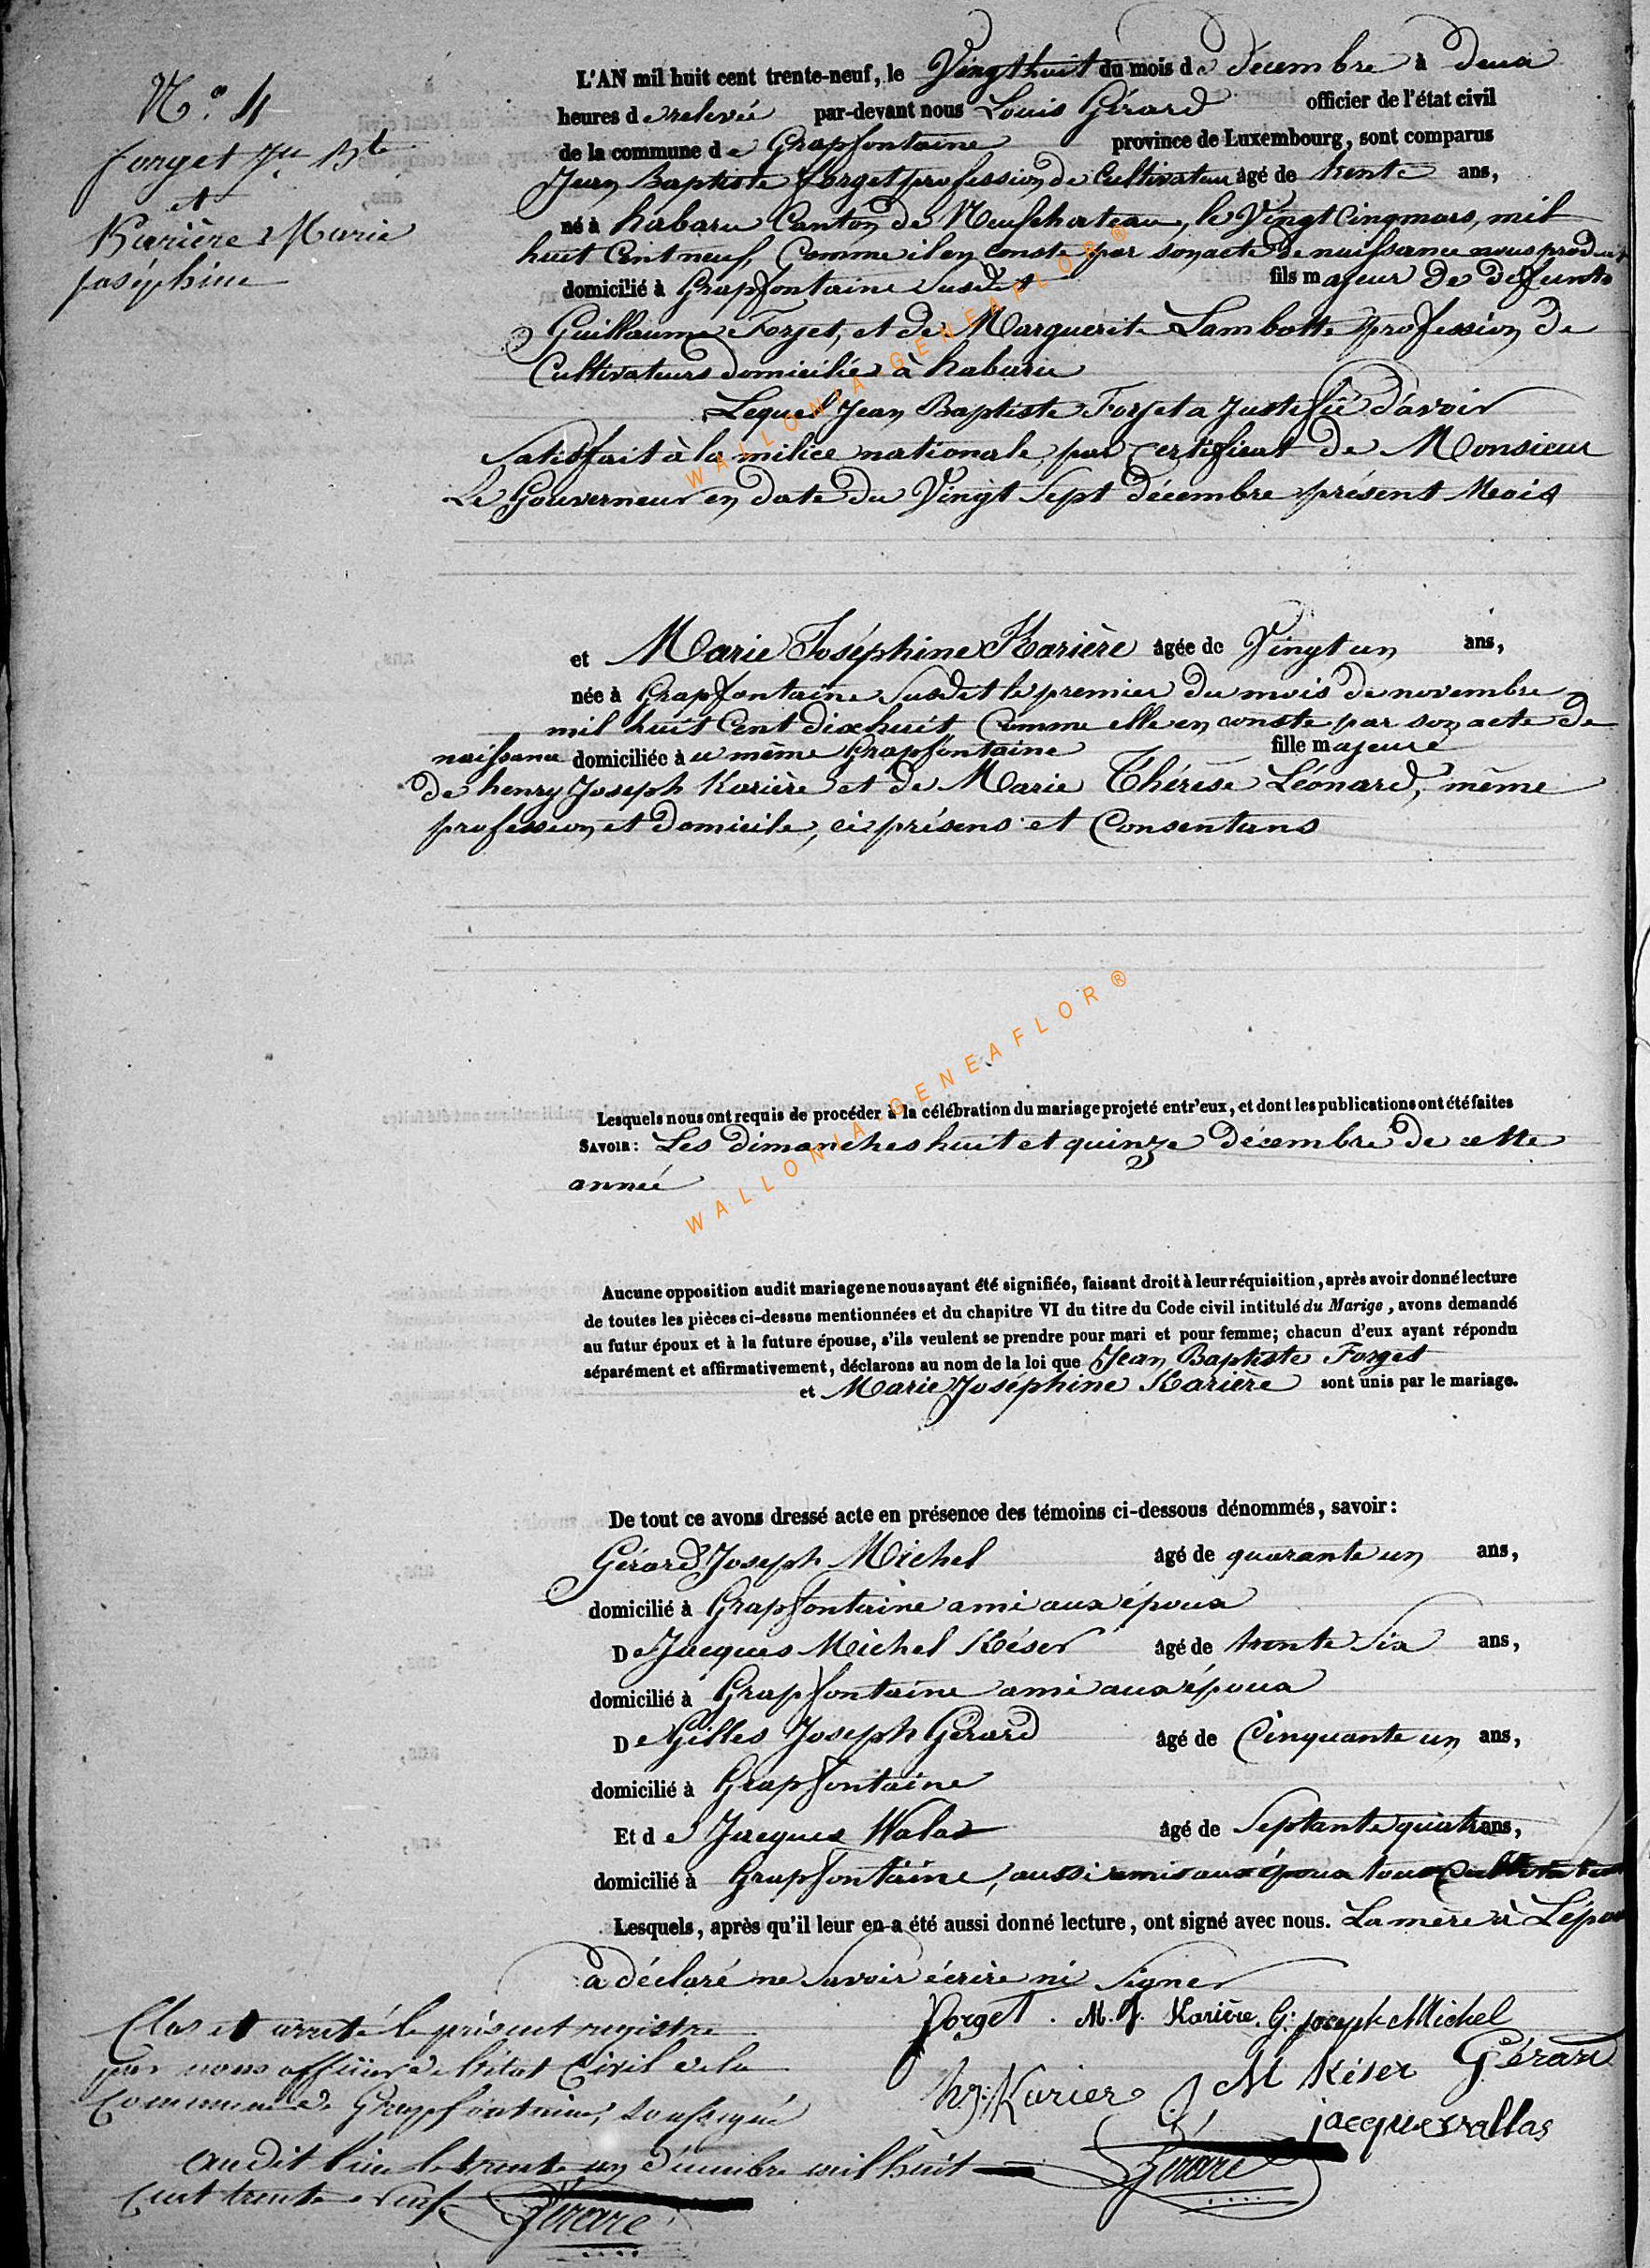 N.º 4
forget Jn Bte
et
Karière Marie
joséphine
L'AN mil huit cent trente-neuf, le Vingt huit du mois de décembre à deux
heures de relevée par-devant nous Louis Gérard officier de l'état civil
de la commune de Grapfontaine province de Luxembourg, sont comparus
Jean Baptiste forget profession de Cultivateur âgé de trente ans,
né à habaru Canton de Neufchateau, le Vingt Cinq mars, mil
huit Cent neuf, Comme il en conste par son acte de naissance nous produit
domicilié à Grapfontaine Susdit fils majeur de défunts
Guillaume Forget, et de Marguerite Lambotte profession de
Cultivateurs domiciliés à habaru
Lequel Jean Baptiste Forget a Justifié d'avoir
Satisfait à la milice nationale, par Certificat de Monsieur
Le Gouverneur en date du Vingt Sept décembre présent Mois
et Marie Joséphine Karière âgée de Vingt un ans,
née à Grapfontaine Susdit le premier du mois de novembre
mil huit Cent dix huit Comme elle en conste par son acte de
naissance domiciliée à u même Grapfontaine fille majeure
de henry Joseph Karière et de Marie Thérèse Léonard, même
profession et domicile, ci présens et Consentans
Lesquels nous ont requis de procéder à la célébration du mariage projeté entr'eux, et dont les publications ont été faites
SAVOIR: Les dimanches huit et quinze décembre de cette
année
Aucune opposition audit mariage ne nous ayant été signifiée, faisant droit à leur réquisition, après avoir donné lecture
de toutes les pièces ci-dessus mentionnées et du chapitre VI du titre du Code civil intitulé du Marige, avons demandé
au futur époux et à la future épouse, s'ils veulent se prendre pour mari et pour femme; chacun d'eux ayant répondu
séparément et affirmativement, déclarons au nom de la loi que Jean Baptiste Forget
et Marie Joséphine Karière sont unis par le mariage.
De tout ce avons dressé acte en présence des témoins ci-dessous dénommés, savoir:
Gérard Joseph Michel âgé de quarante un ans,
domicilié à Grapfontaine ami aux époux
De Jacques Michel Késer âgé de trente Six ans,
domicilié à Grapfontaine ami aux époux
De Gilles Joseph Gérard âgé de Cinquante un ans,
domicilié à Grapfontaine
Et de Jacques Walas âgé de Septante quatre ans,
domicilié à Grapfontaine, aussi amis aux époux tous
Lesquels, après qu'il leur en a été aussi donné lecture, ont signé avec nous. La mère à L'épou
a déclaré ne Savoir écrire ni Signer
forget. M. J. Karière. G: joseph Michel
hy: Karier J M Késer Gérard
jacque wallas
Gérard
Clos et arreté le présent registre
par nous officier de l'état Civil de la
Commune de Grapfontaine, soussigné
audit lieu le trente un décembre mil huit
Cent trente neuf
Gérard
WALLONIA GENEAFLOR ®
WALLONIA GENEAFLOR ®